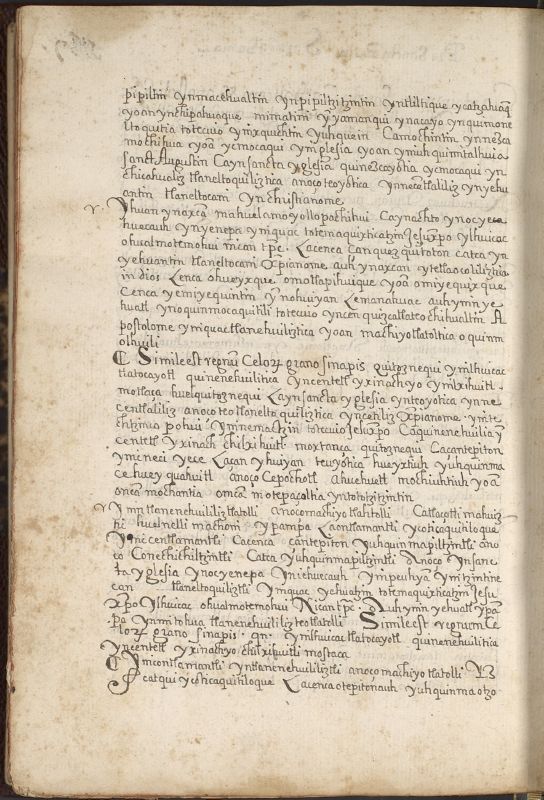 pipiltin ynmacehualtin ynpipiltzitzintin yntliltique ycatzahuaq̄
yoan ynchipahuaque . mimatini yyamanqui ynacayo ynquimone
ltoquitia totecuio ymixquichtin yuhquein Camochintin ynnesca
mochihua yoā ycmocaqui ymyglesia yoan ymiuh quimitalhui a
sanct Augustin Caynsancta yglesia quinezcayotia ycmocaqui yn
chicahualiz tlaneltoquiliztica anoço teoyotica ynnecetlaliliz ynyehu
antin tlaneltocani ynchristianome .
Ihuan ynaxcā mahuelamoyollopachihui Caynachto ynocyeca
huecauh ynyenepa yniquac totemaquixticatzin Jesuxpo ylhuicac
ohualmotemohui nican tp̄c . Cacenca çanquezquitoton catca yn
yehuantin tlaneltocani xp̄ianome auh ynaxcan ytetlaocoliliztica
in dios Cenca ohueyxque omotlapihuique yoā omiyequixque
Cenca yemiyequintin yn nohuiyan Cemanahuac auh yn ye
huatl ynoquinmocaquitili totecuio yncenquizcatlateochihualtin A
postolome yniquac tlanehuiliztica yoan machiyotlatoltica oquinm
olhuili
Simile est regnum Celorum grano sinapis quitoznequi ymilhuicac
tlatocayotl quinenehuilitiia yncentetl yxinachyo ymilxihuitl
mostaça huelquitoznequi Caynsancta yglesia ynteoyotica ynne
centlaliliz anoço teotlaneltoquiliztica yncetiliz xp̄ianome . ymte
chtzinco pohui ymnemactzin totecuio Jesuxpo Caquinenehuilia y
centetl yxinach chilxihuitl moxtança quitoznequi Caçantepiton
ymeneci yece Caçan yhuiyan teuyotica hueyxtiuh yuhquinma
ce huey quahuitl anoço Cepochotl ahuehuetl mochiuhtiuh yoā
oncā mochantia oncā motepaçoltia yntototzitzintin
Inintlanenehuililiztlatolli anocomachiyotlahtolli Catlaçotli mahuiz
ti huelnelli machoni ypampa Caontlamantli ycoticaquitiloque
Inicentlamantli Cacenca cantepiton yuhquinmapiltzintli ano
ço Conechichiltzintli Catca yuhquinmapiltzintli Anoço ynsanc
ta yglesia ynocyenepa ynihuecauh ympeuhyā ymitzintine
can tlaneltoquiliztli ymquac yehuatzin totemaquixticatzin Jesu
xpo ylhuicac ohualmotemohui Nican tp̄c . Auhymin yehuatl ypā
pa ynmitohua tlanenehuililizteotlatolli Simile est regnum Ce
lorum grano sinapis . qn . ymilhuicac tlatocayotl quinenehuilitica
yncentetl yxinachyo chilxihuitli mostaca
Iniconitlamantli yntlanenehuililiztli anoco machiyotlatolli
catqui ycoticaquitiloque Cacenca otepitonauh yuhquinma otzo